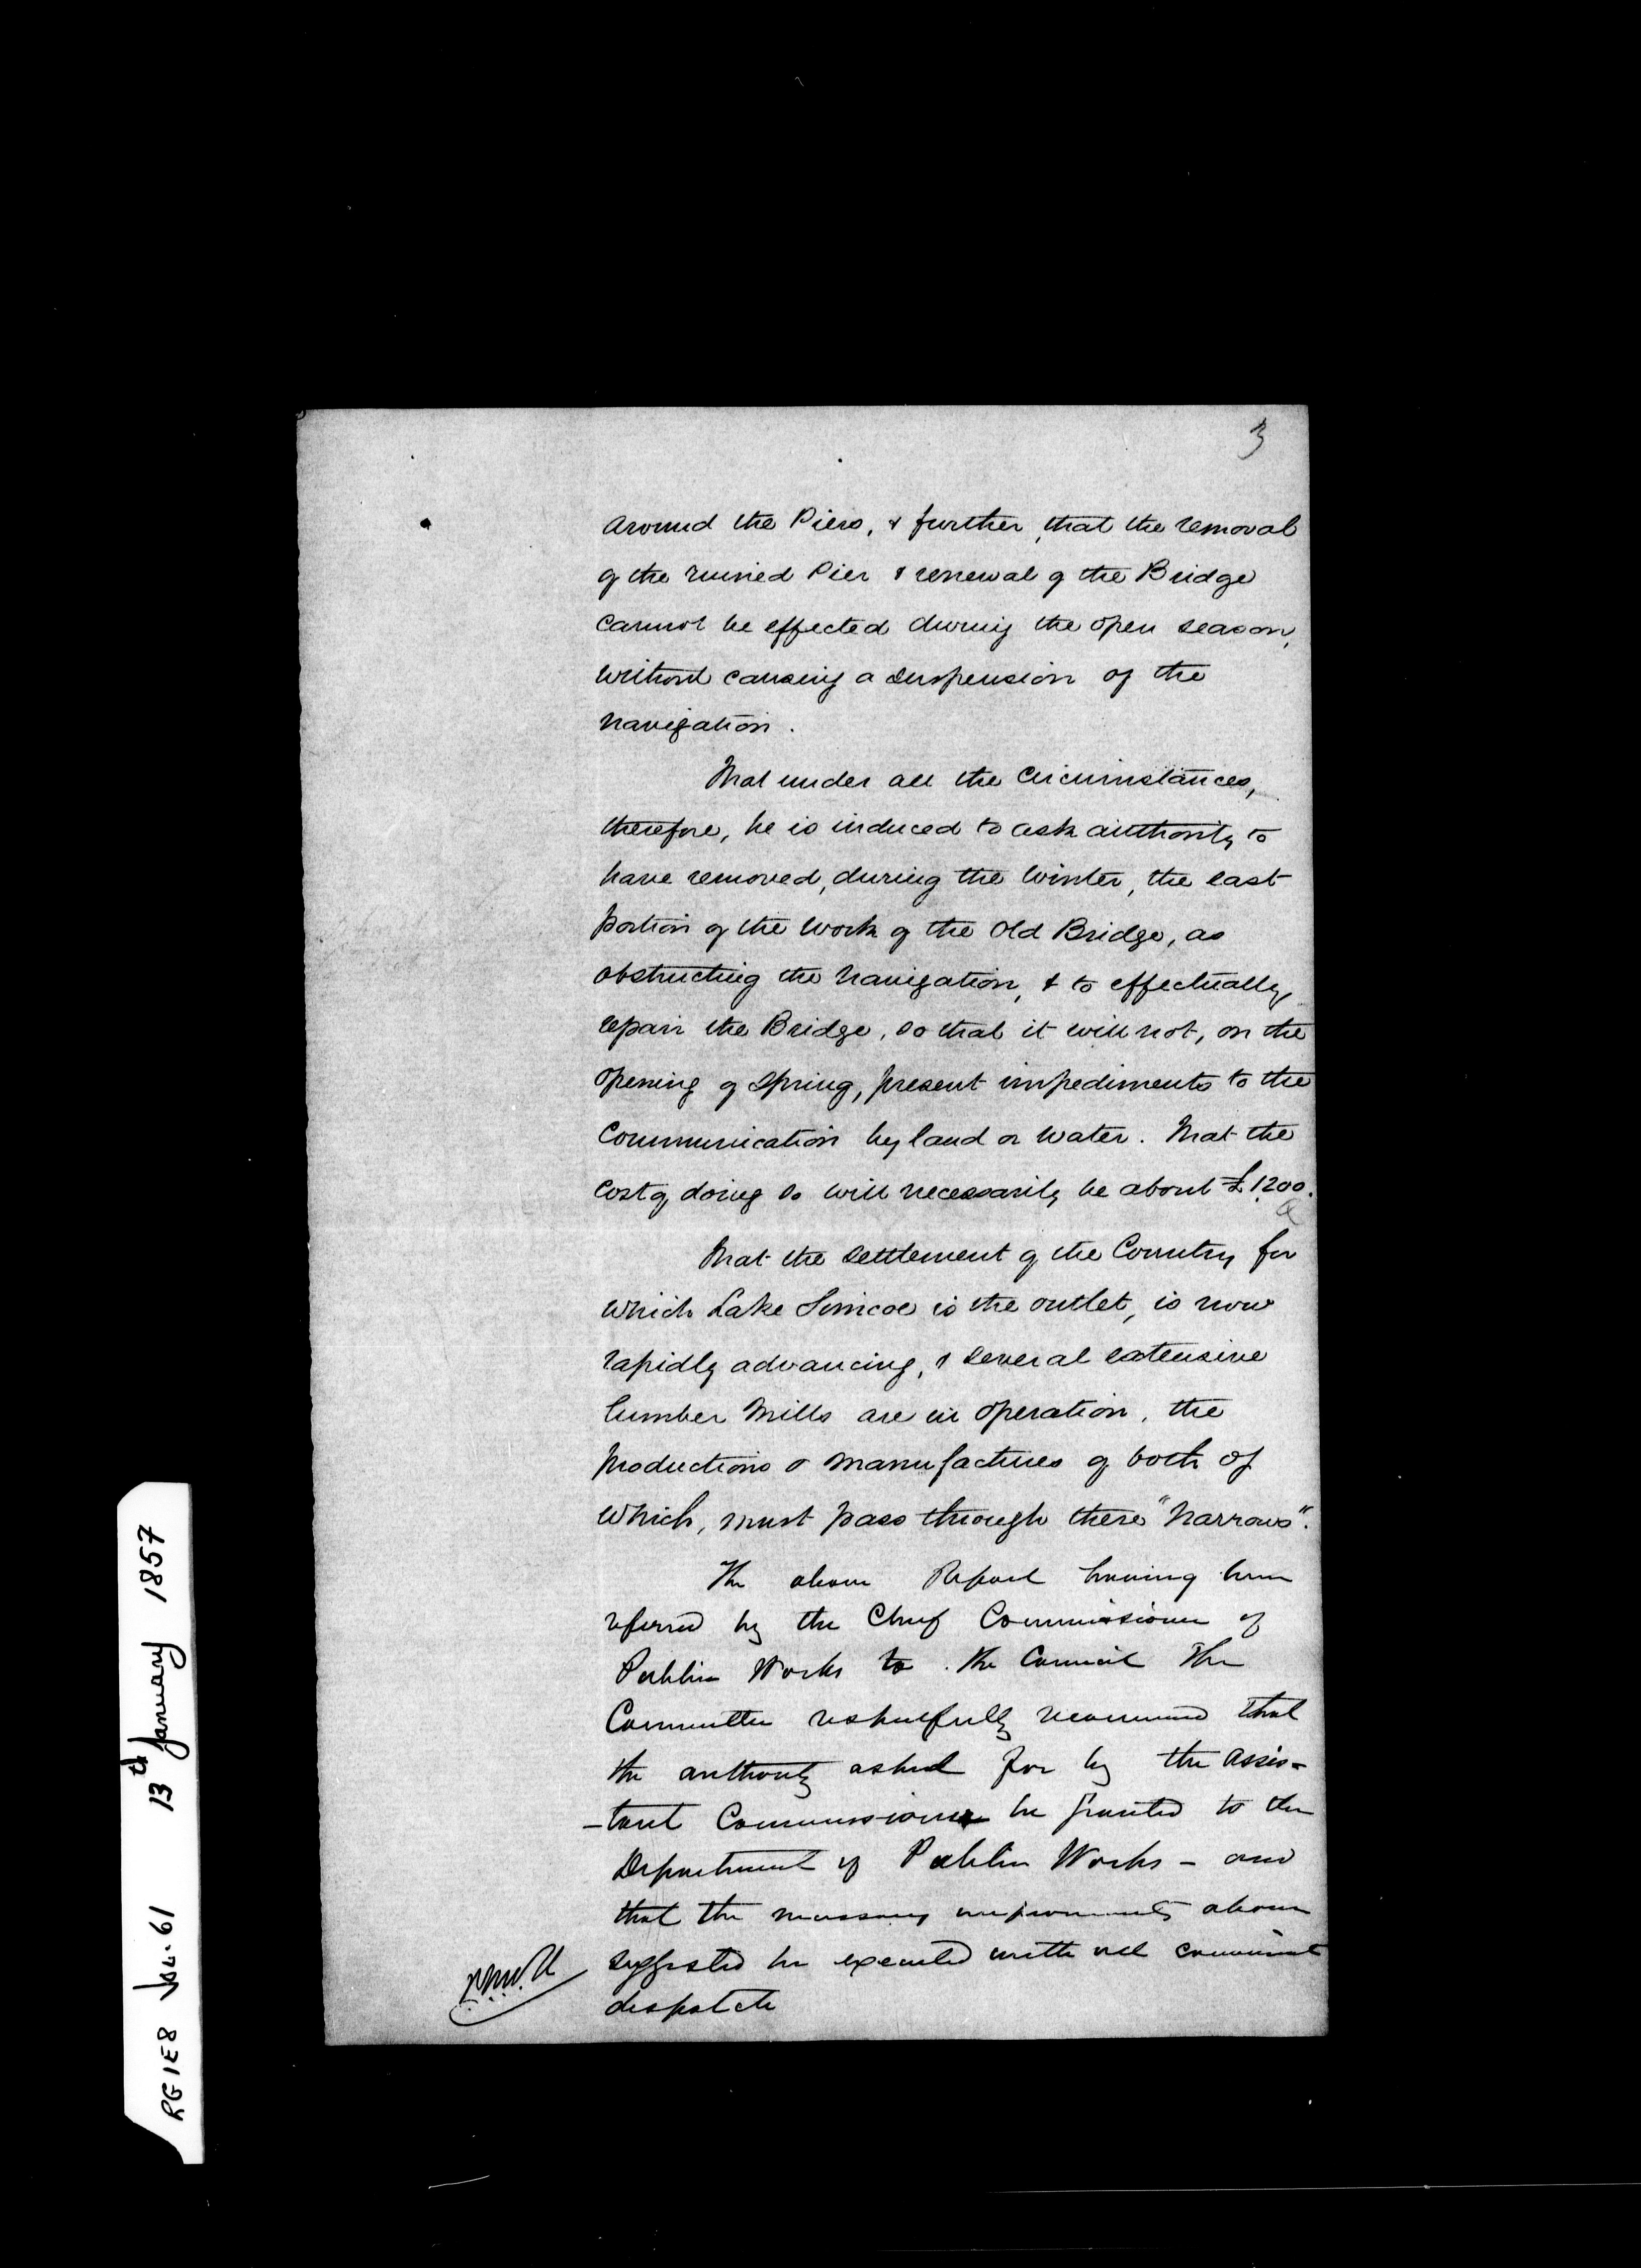 3
around the Piers, & further, that the removal
of the ruined Pier & renewal of the Bridge
cannot be effected during the open season,
without causing a suspension of the
navigation.
That under all the circumstances,
therefore, he is induced to ask authority to
have removed, during the Winter, the east
portion of the work of the old Bridge, as
obstructing the navigation, & to effectually
repair the Bridge, so that it will not, on the
opening of Spring, present impediments to the
Communication by land or water. That the
cost of doing so will necessarily be about £1200.
That the settlement of the Country for
which Lake Simcoe is the outlet, is now
rapidly advancing, & several extensive
lumber Mills are in operation, the
productions & manufactures of both of
which, must pass through these "Narrows".
The above Report having been
referred by the Chief Commissioner of
Public Works to the Council The
Committee respectfully recommend that
the authority asked for by the Assis-
-tant Commissioner be granted to the
Department of Public Works - and
that the necessary improvements above
suggested be executed with all convenient
dispatch
RG1E8 Vol. 61 13th January 1857